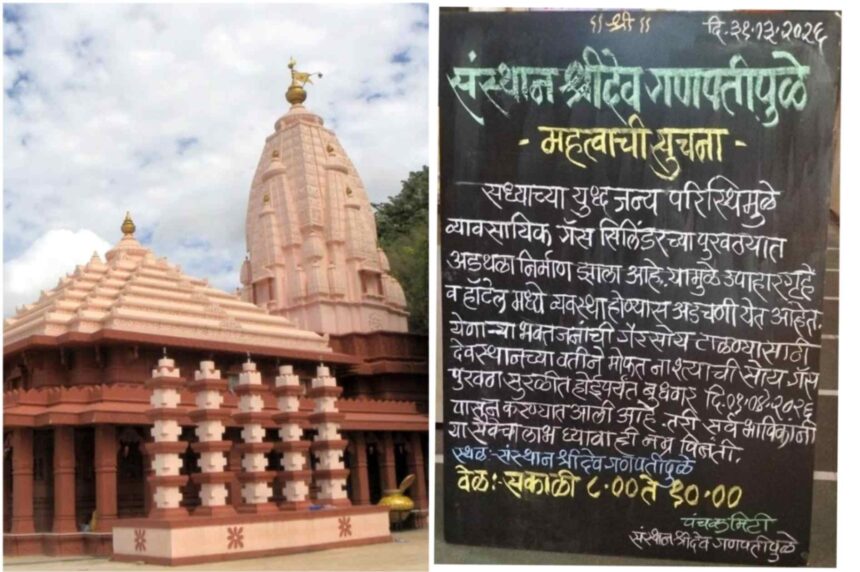 ॥ श्री ॥
दि.३१.०३.२०२६
संस्थान श्रीदेव गणपतीपुळे
- महत्वाची सुचना -
सध्याच्या युध्द जन्य परिस्थिमुळे
व्यावसायिक गॅस सिलिंडरच्या पुरवठ्यात
अडथळा निर्माण झाला आहे. यामुळे उपाहार गृहे
व हॉटेल मध्ये व्यवस्था होण्यास अडचणी येत आहेत.
येणाऱ्या भक्त जनांची गैरसोय टाळण्यासाठी
देवस्थानच्या वतीने मोफत नाश्त्याची सोय गॅस
पुरवठा सुरळीत होईपर्यंत बुधवार दि.०१.०४.२०२६
पासून करण्यात आली आहे. तरी सर्व भाविकांनी
या सेवेचा लाभ घ्यावा ही नम्र विनंती.
स्थळ:-संस्थान श्रीदेव गणपतीपुळे
वेळ:-सकाळी ८.०० ते १०.००
पंचकमिटी
संस्थान श्रीदेव गणपतीपुळे